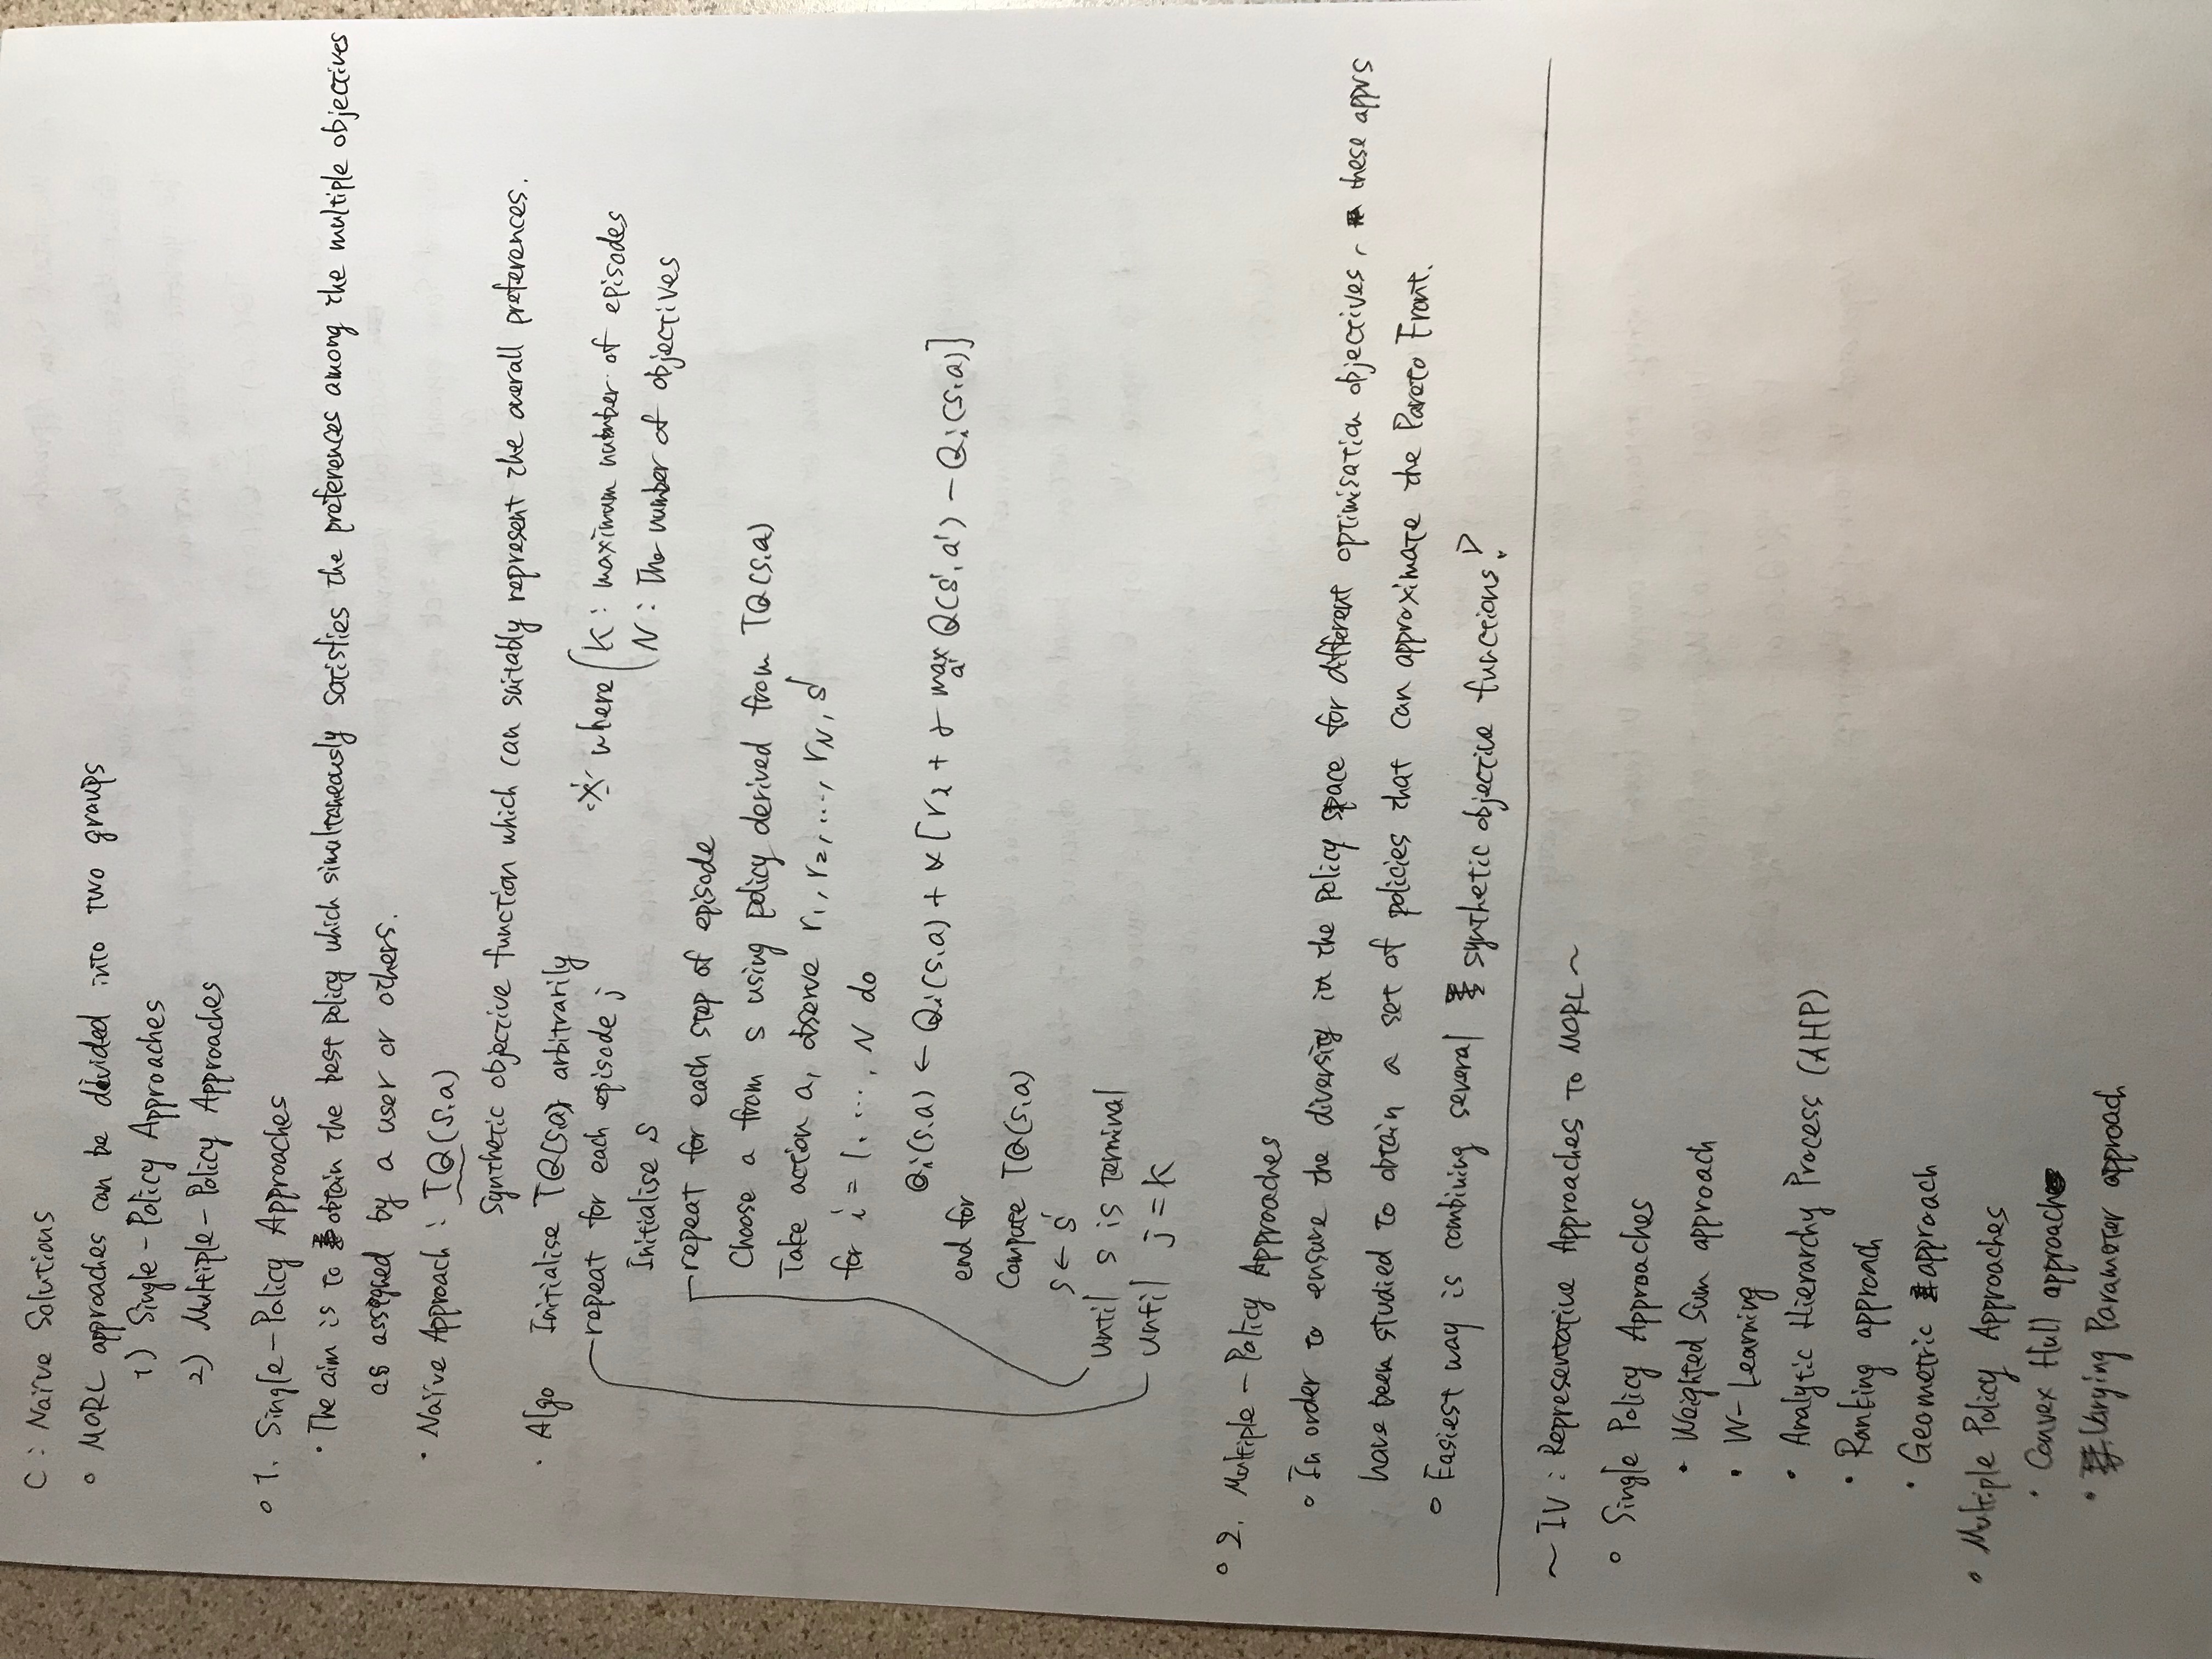 C : Naïve Solutions
○ MORL approaches can be divided into two groups
1) Single-Policy Approaches
2) Multiple-Policy Approaches
○ 1. Single-Policy Approaches
・The aim is to obtain the best policy which simultaneously satisfies the preferences among the multiple objectives
as assigned by a user or others.
・Naïve Approach : TQ(s.a)
Synthetic objective function which can suitably represent the overall preferences.
・Algo Initialise TQ(s.a) arbitrarily
repeat for each episode j
※ where K : maximum number of episodes
N : The number of objectives
Initialise s
repeat for each step of episode
Choose a from s using policy derived from TQ(s.a)
Take action a, observe r₁, r₂, ..., r_N, s'
for i = 1. ..., N do
Qᵢ(s.a) ← Qᵢ(s.a) + α[rᵢ + γ max_a' Q(s', a') - Qᵢ(s.a)]
end for
Compute TQ(s.a)
s ← s'
until s is terminal
until j = K
○ 2. Multiple-Policy Approaches
○ In order to ensure the diversity in the policy space for different optimisation objectives, these apprs
have been studied to obtain a set of policies that can approximate the Pareto Front.
○ Easiest way is combining several synthetic objective functions!
~ IV : Representative Approaches To MORL ~
○ Single Policy Approaches
・Weighted Sum approach
・W-Learning
・Analytic Hierarchy Process (AHP)
・Ranking approach
・Geometric approach
○ Multiple Policy Approaches
・Convex Hull approach
・Varying Parameter approach